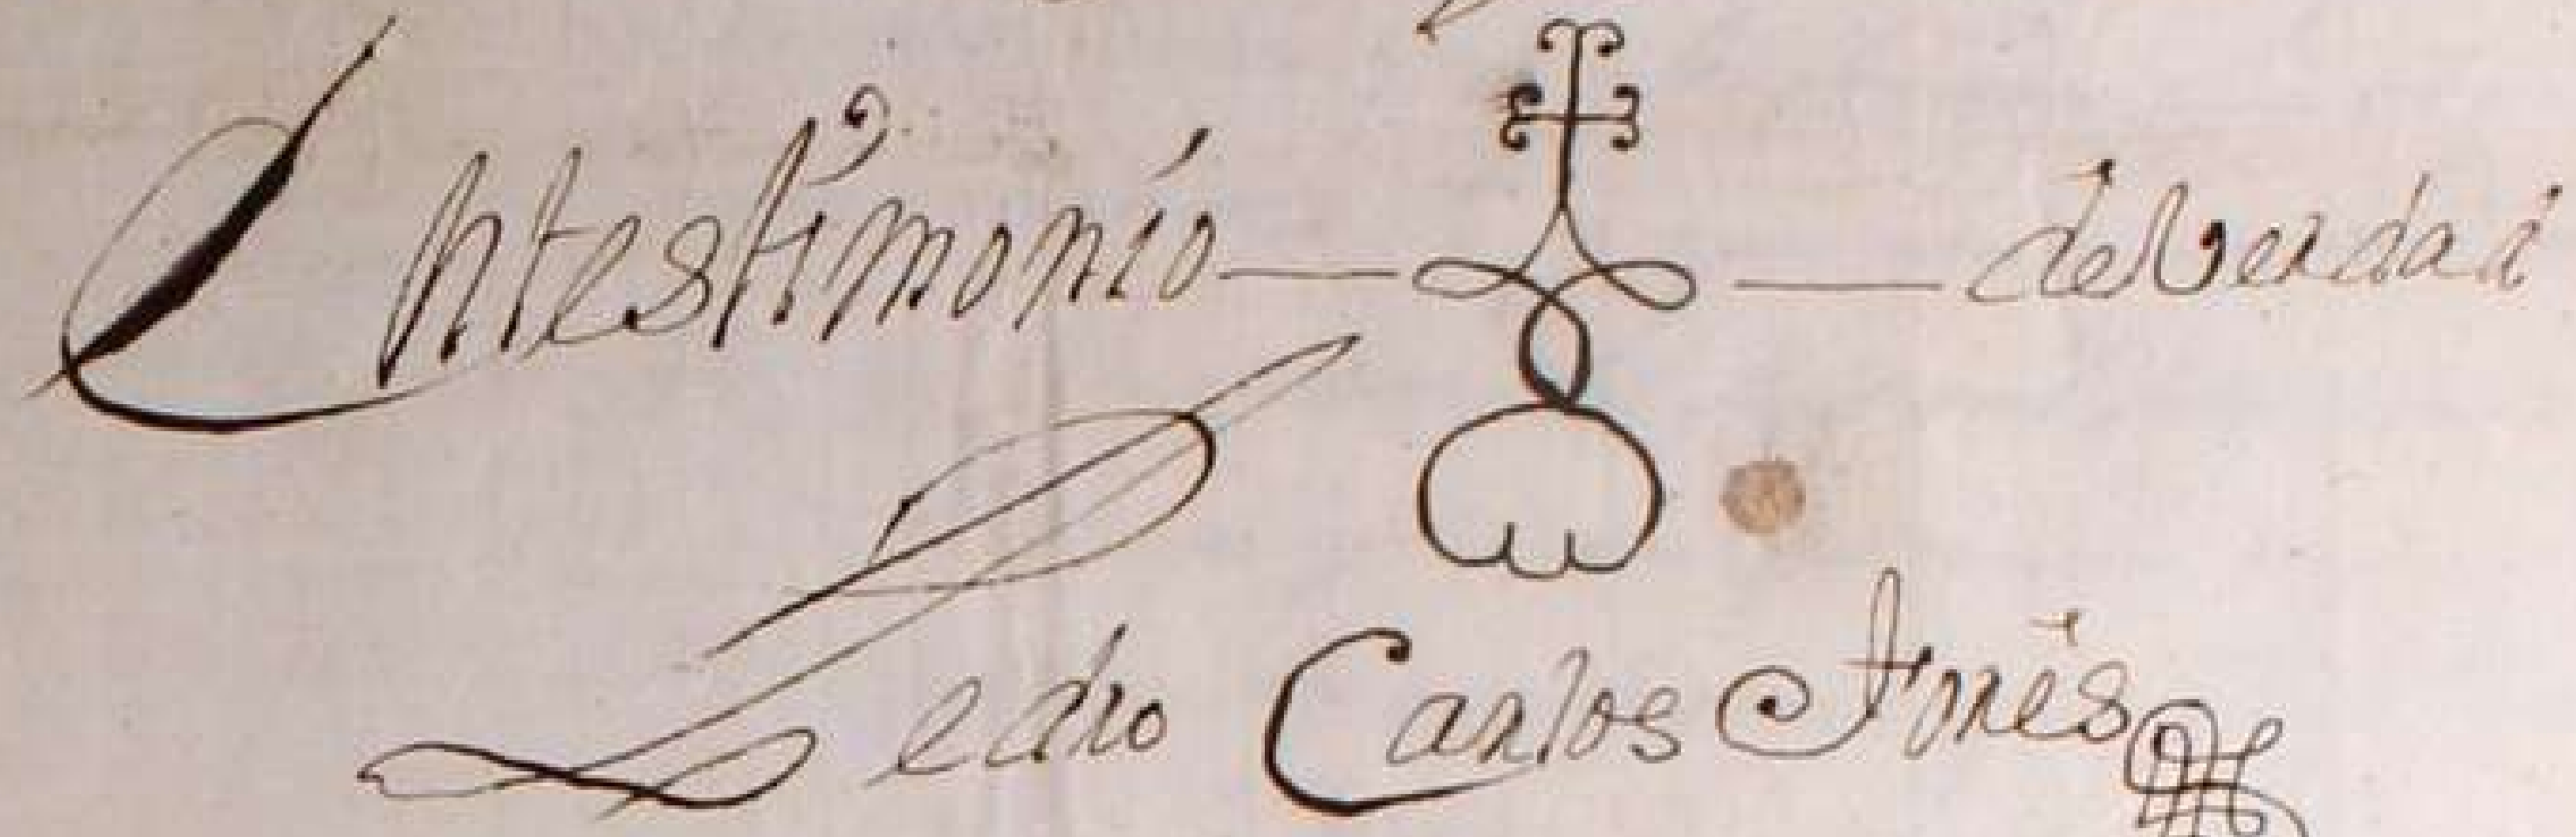 En testimonio — de Verdad
Pedro Carlos